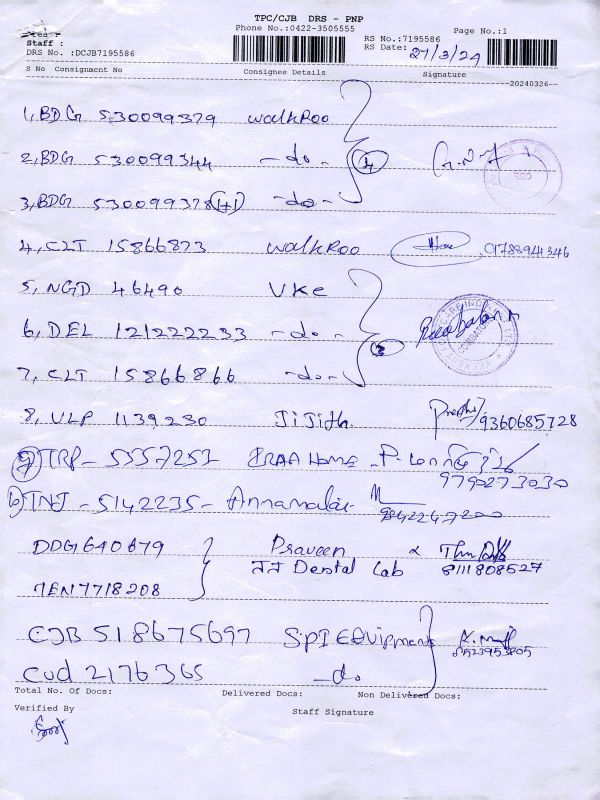 TPC/CJB DRS - PNP
Phone No.:0422-3505555
Page No.:1
Staff :
RS No.:7195586
DRS No. :DCJB7195586
RS Date: 27/3/24
S No Consignment No Consignee Details Signature
20240326
1, BDG 530099379 WalkRoo
2, BDG 530099344 -do- 4
3, BDG 530099378 (1+1) -do-
4, CLT 15866873 WalkRoo 01788941346
5, NGD 46490 VKC
6, DEL 121222233 -do- 3
7, CLT 15866866 -do-
8, VLP 1139230 JiJith. 9360685728
9) TRP- 5557251 HOME
9790273030
10) TNJ - 5142235- Annamalai
9842247200
DDG 640679 Praveen &
Dental Lab 8111808527
TEN 7718208
CJB 518675697 SPI Equipment
Cud 2176365 -do
Total No. Of Docs: Delivered Docs: Non Delivered Docs:
Verified By Staff Signature